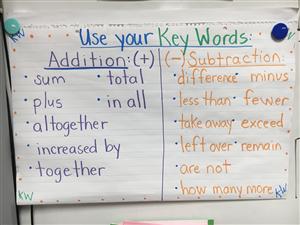 Use your Key Words:
Addition: (+)
• sum • total
• plus • in all
• altogether
• increased by
• together
(-) Subtraction:
• difference • minus
• less than • fewer
• take away • exceed
• left over • remain
• are not
• how many more
KW
KW
KW
KW